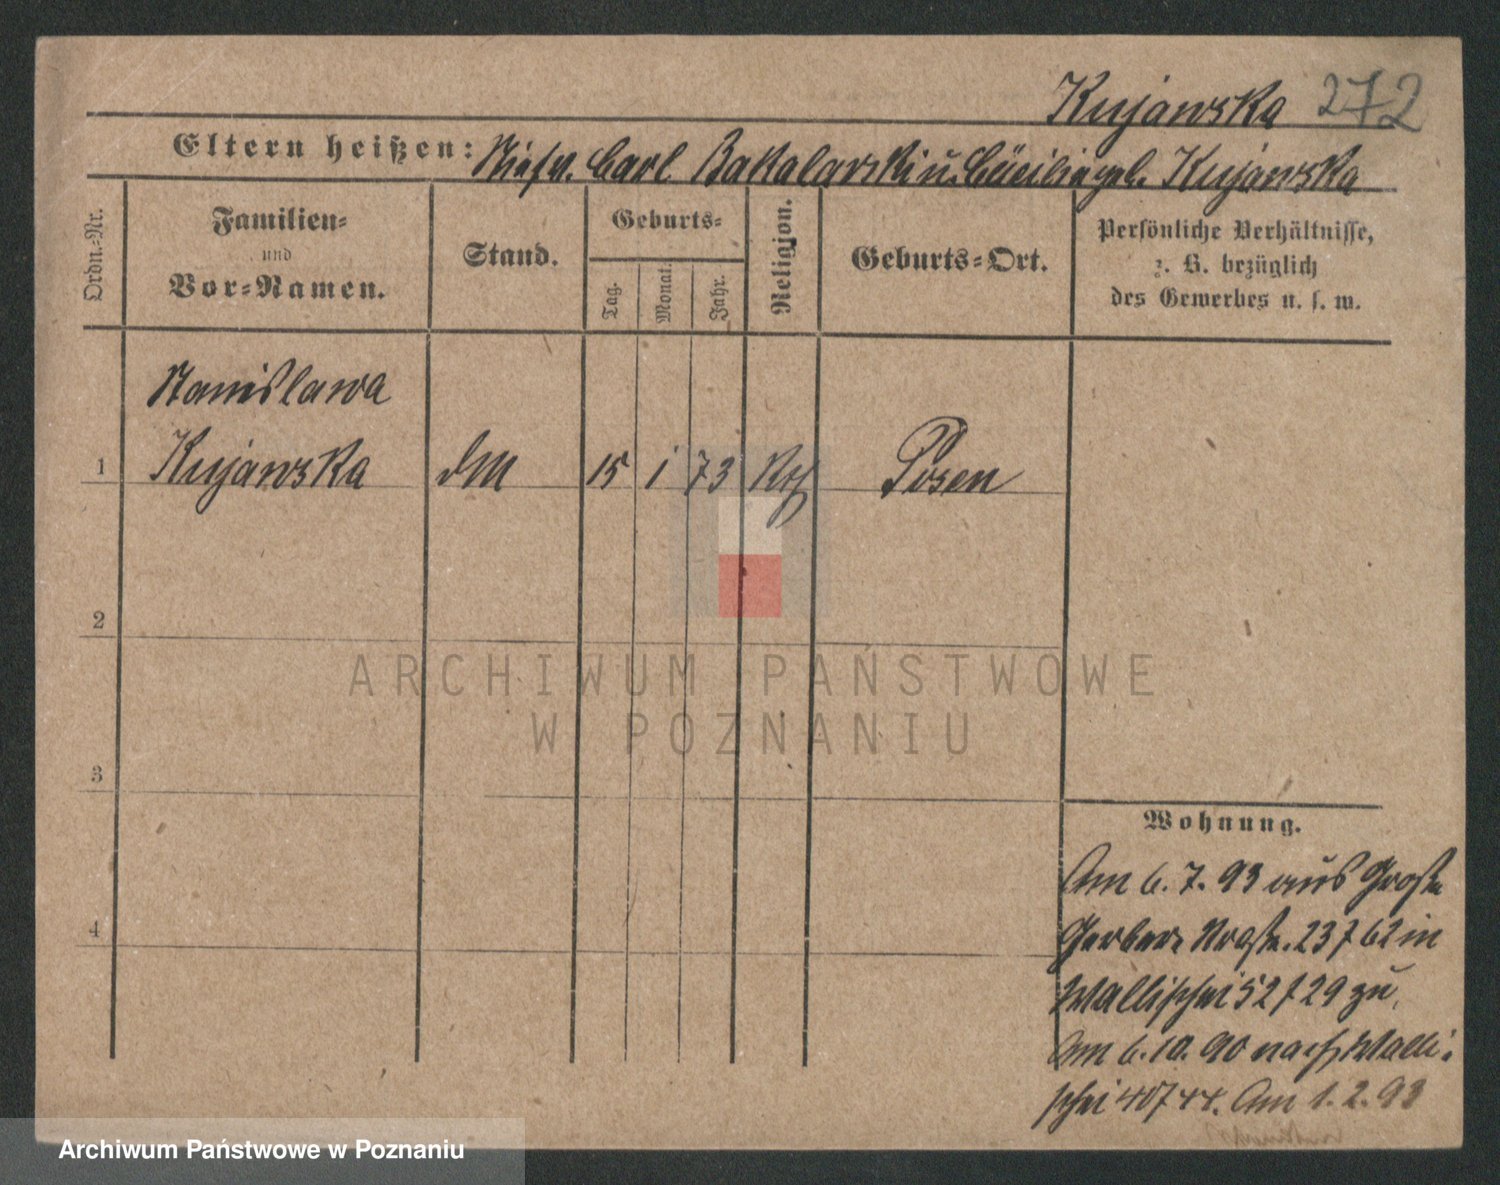 Kujawska 272
Eltern heißen: Carl Bakalarski u. Cäcilia geb. Kujawska
Ordn.-Nr.
Familien-
und
Vor-Namen.
Stand.
Geburts-
Tag.
Monat.
Jahr.
Religion.
Geburts-Ort.
Persönliche Verhältnisse,
z. B. bezüglich
des Gewerbes u. s. w.
Stanislawa
1 Kujawska 15 1 73 Kth Posen
2
3
4
ARCHIWUM PAŃSTWOWE
W POZNANIU
Wohnung.
Am 6. 7. 93 aus Große
Gerber 23 f 62 in
Wallischei 52 f 29 zu
Am 6. 10. 90 nach Walli-
schei 40 f 44. Am 1. 2. 93
Archiwum Państwowe w Poznaniu